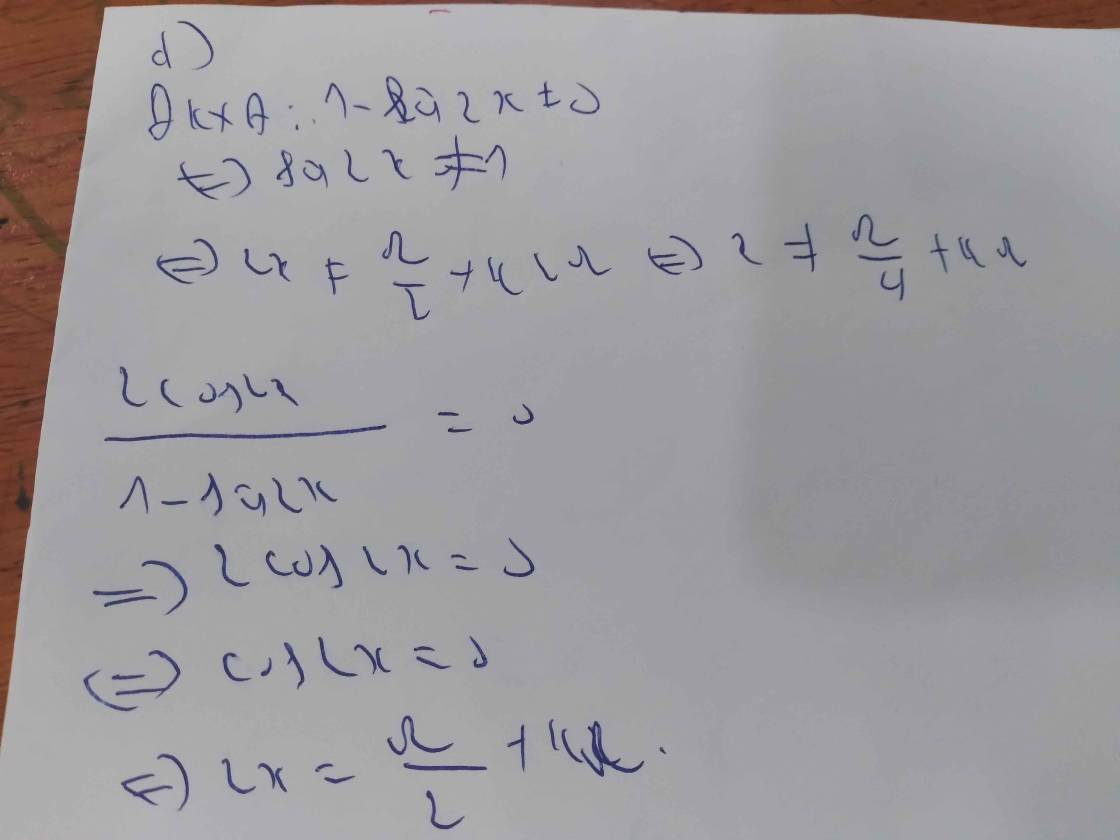 d)
ĐKXĐ: 1 - sin2x ≠ 0
⇔ sin2x ≠ 1
⇔ 2x ≠ π/2 + k2π ⇔ x ≠ π/4 + kπ
2cos2x / (1 - sin2x) = 0
⇒ 2cos2x = 0
⇔ cos2x = 0
⇔ 2x = π/2 + kπ.